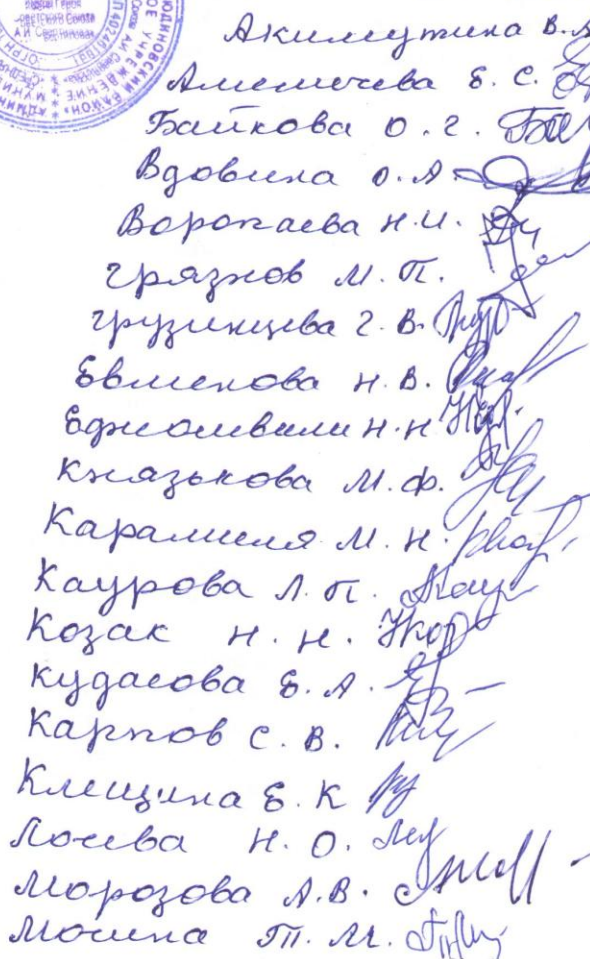 Акимутина В.А
Амеличева Е. С.
Байкова О. Г.
Вдовина О. А
Воропаева Н. И.
Грязнов М. П.
Грузинцева Г. В.
Евменова Н. В.
Князькова М. Ф.
М. Н.
Каурова Л. П.
Козак Н. Н.
Кудасова Е. А.
Карпов С. В.
Клещина Е. К
Лосева Н. О.
Морозова А. В.
Мосина Т. М.